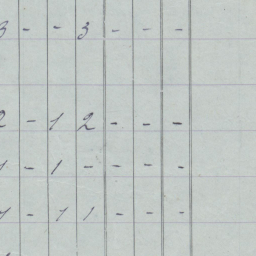 3 - - 3 - - -
2 - 1 2 - - -
1 - 1 - - - -
1 - 1 1 - - -